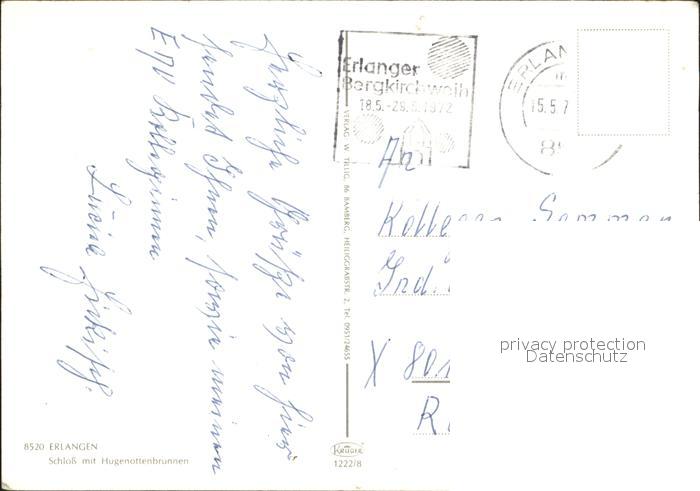 Erlanger
Bergkirchweih
18.5.-29.5.1972
ERLAN
15.5.7
85
Herzliche Grüße von hier
sendet Ihnen, sowie meinen
EDV Kolleginnen
An
X 801
VERLAG W. TILLIG, 86 BAMBERG, HEILIGGRABSTR. 2, Tel. 0951/24655
privacy protection
Datenschutz
8520 ERLANGEN
Schloß mit Hugenottenbrunnen
KRÜGER
1222/8